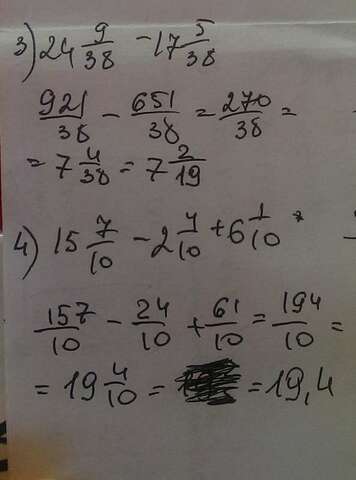 3) 24 9/38 - 17 5/38
921/38 - 651/38 = 270/38 =
= 7 4/38 = 7 2/19
4) 15 7/10 - 2 4/10 + 6 1/10
157/10 - 24/10 + 61/10 = 194/10 =
= 19 4/10 = = 19,4